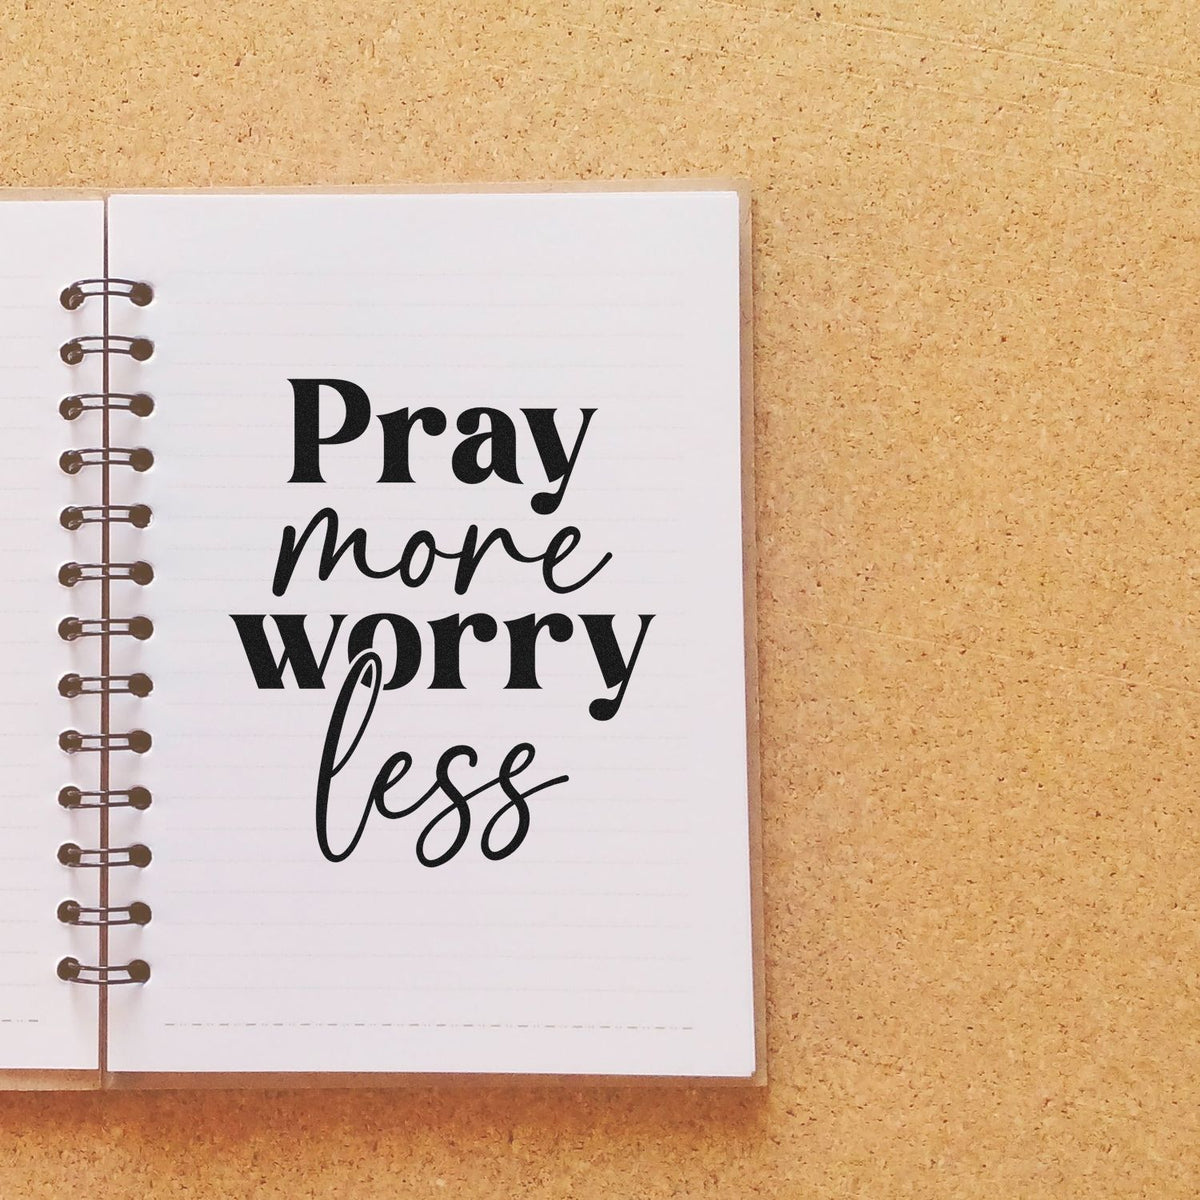 Pray
more
worry
less